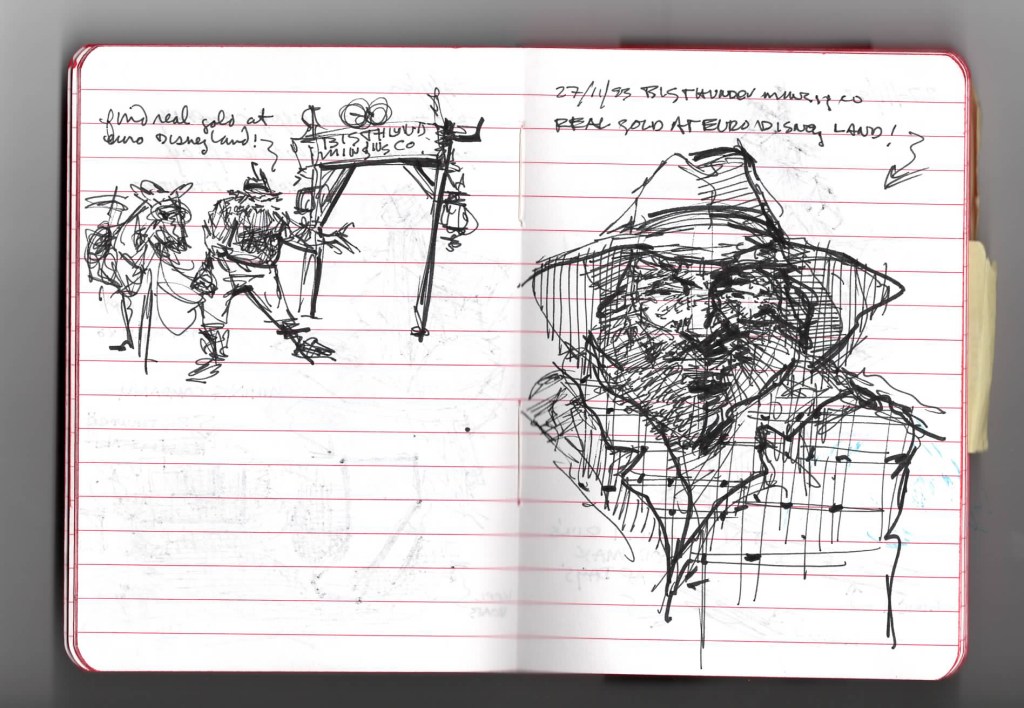 find real gold at
euro Disneyland!
BIGTHUND
MINING CO.
27/11/93 BIGTHUNDER mining co
REAL GOLD AT EURO DISNEY LAND!